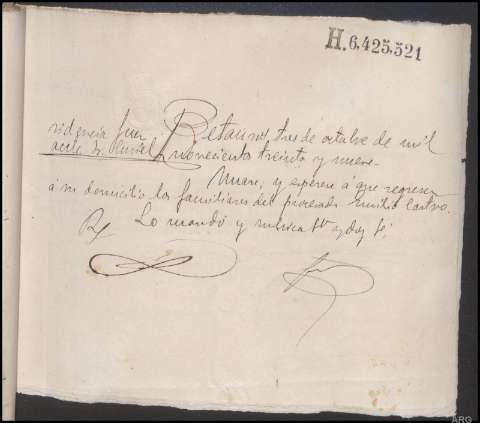 H.6.425.521
Providencia Juez
Retascón, tres de octubre de mil
novecientos treinta y nueve.
Unase, y espérese á que regresen
á su domicilio los familiares del procesado Emilio Castro.
Lo mandó y rubrica Sª y doy fé.
ARG